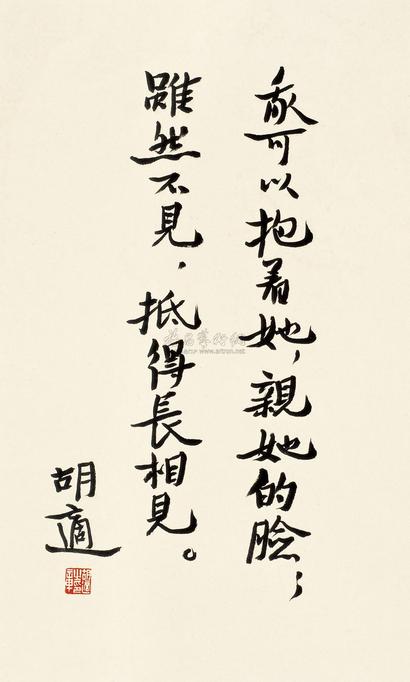 我可以抱着她,親她的臉;
雖然不見,抵得長相見。
胡適
www.artron.net